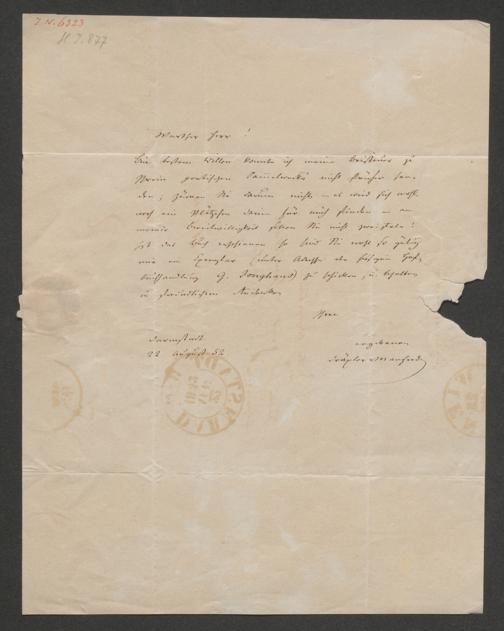 J.N. 6323
H.J. 877
Werther Herr!
Bei bestem Willen konnte ich meine Beisteuer zu
Ihrem poetischen Sammelwerke nicht früher sen-
den; zürnen Sie darum nicht, es wird sich wohl
noch ein Plätzchen darin für mich finden – an
meiner Bereitwilligkeit haben Sie nicht zweifeln!
Ist das Buch erschienen so sind Sie wohl so gütig
mir ein Exemplar (unter Adresse der hiesigen Hof-
buchhandlung G. Jonghaus) zu schicken, u. behalten
in freundlichem Andenken
Ihren
Darmstadt
ergebenen
22 August 52
Dräxler Manfred
DARMSTADT